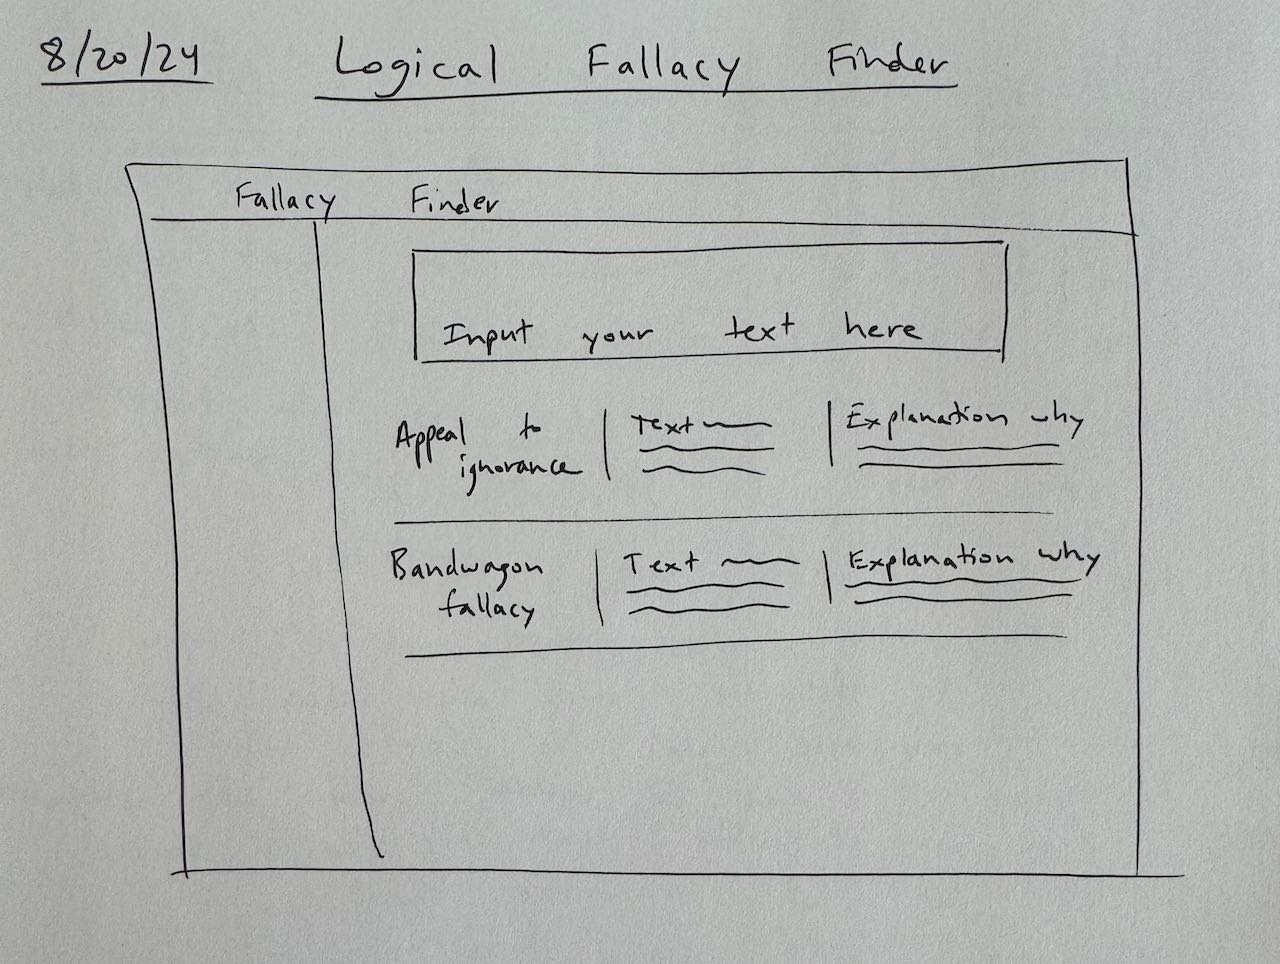 8/20/24 Logical Fallacy Finder
Fallacy Finder
Input your text here
Appeal to
ignorance
Text
Explanation why
Bandwagon
fallacy
Text
Explanation why